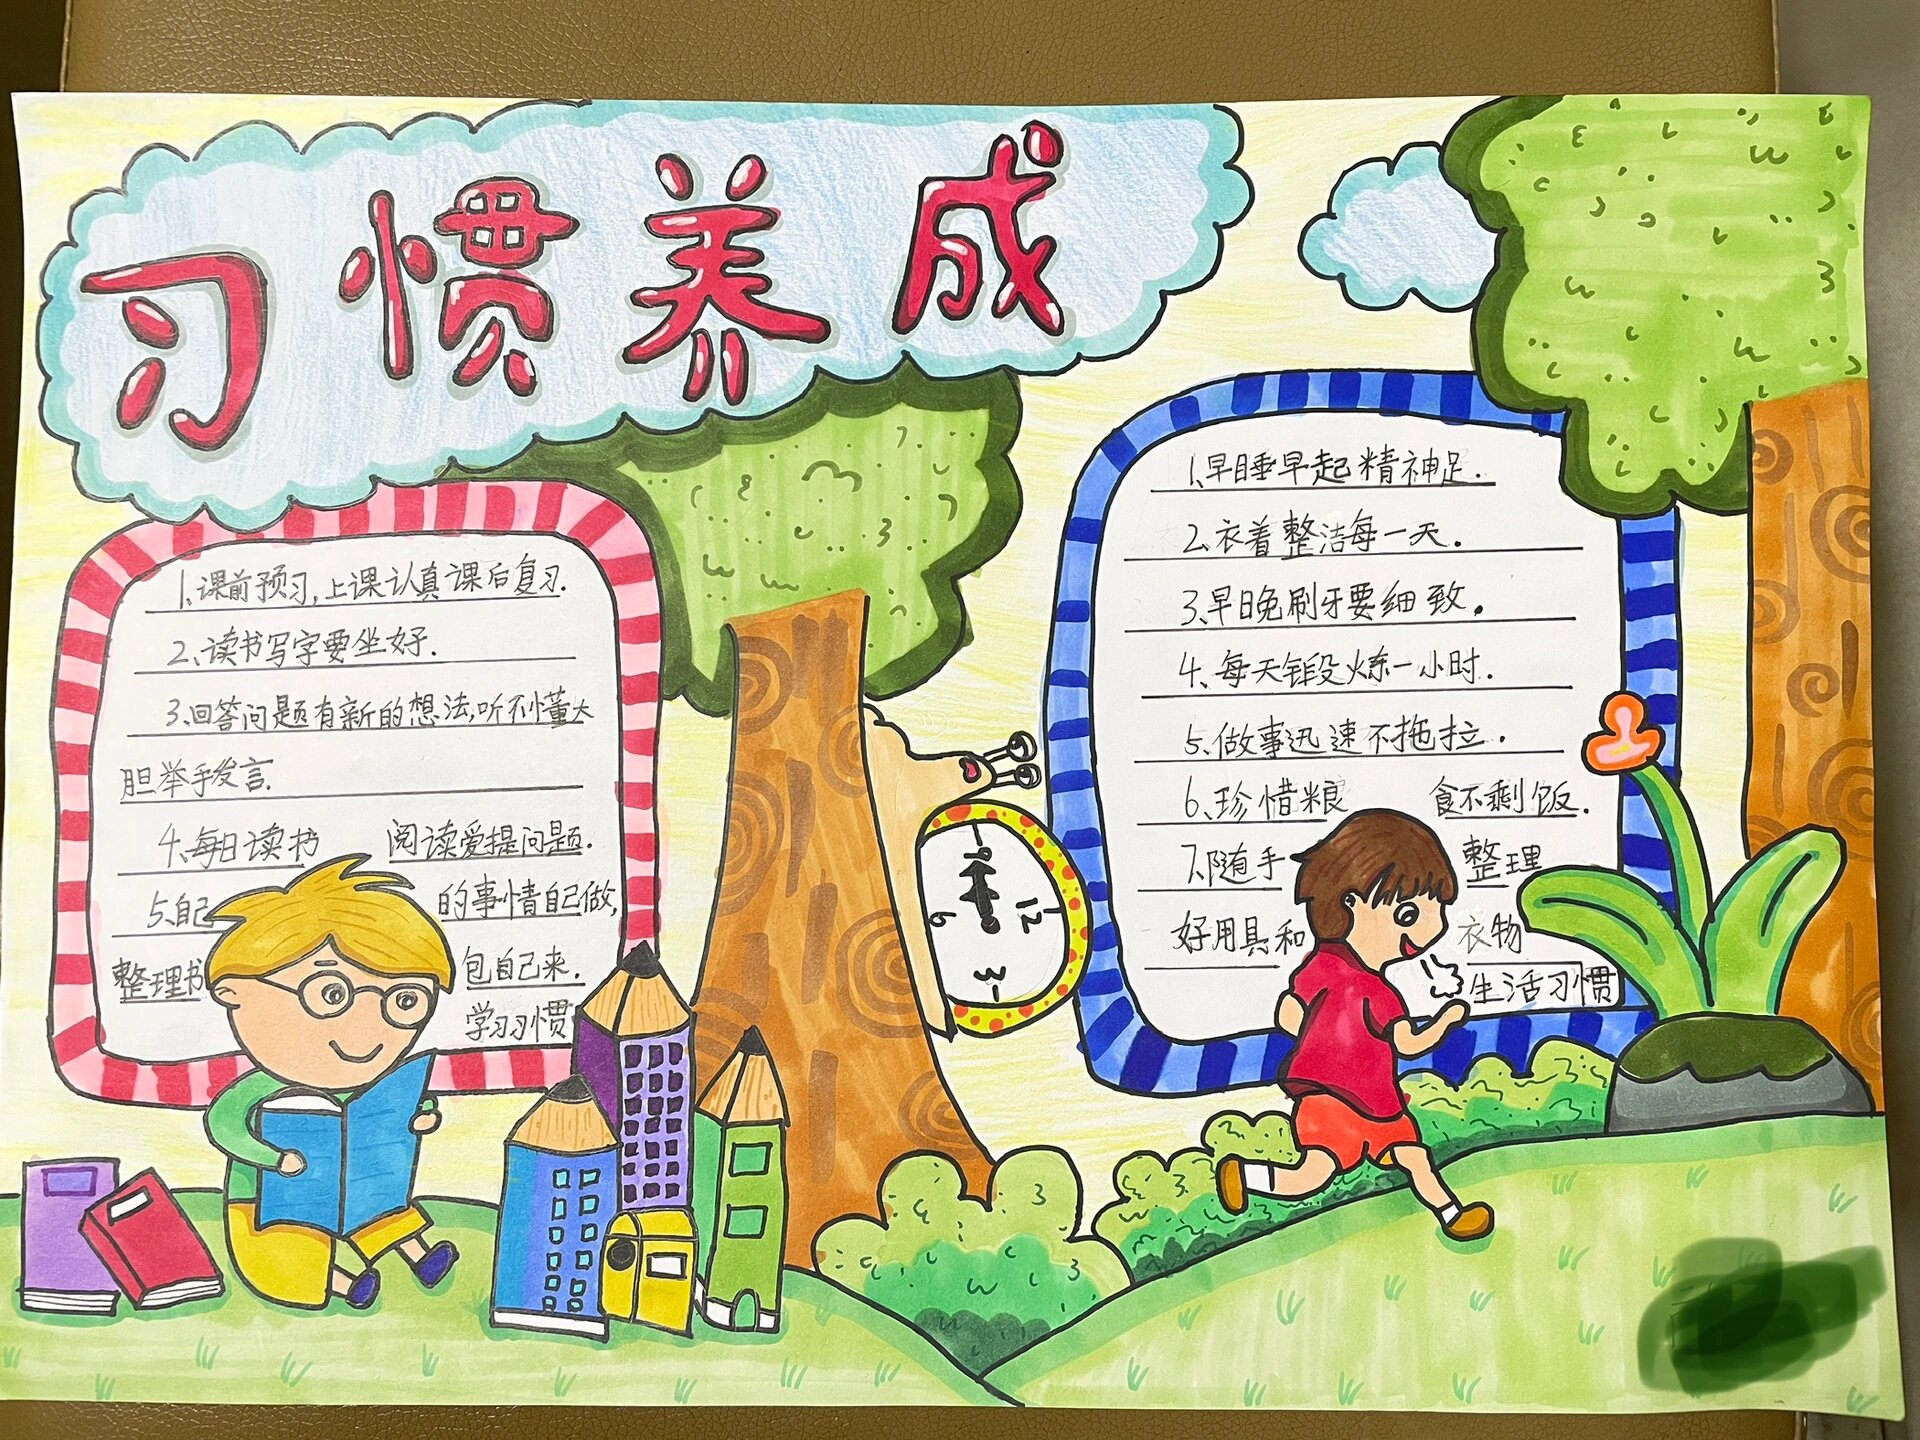 习惯养成
1、课前预习,上课认真课后复习.
2、读书写字要坐好.
3、回答问题有新的想法,听不懂大
胆举手发言.
4、每日读书 阅读爱提问题.
5、自己 的事情自己做,
整理书 包自己来.
学习习惯
1、早睡早起精神足.
2、衣着整洁每一天.
3、早晚刷牙要细致.
4、每天锻炼一小时.
5、做事迅速不拖拉.
6、珍惜粮 食不剩饭.
7、随手 整理
好用具和 衣物
生活习惯
9
12
6
3